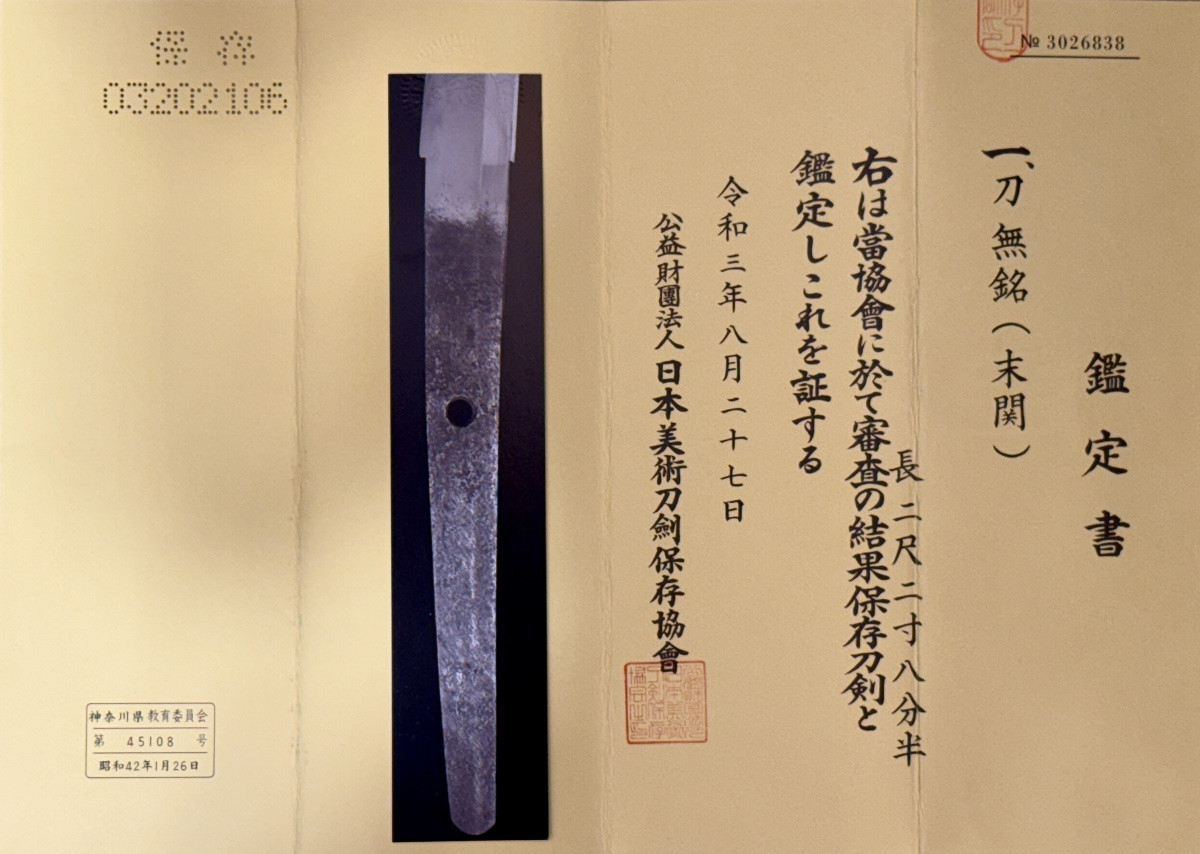 № 3026838
鑑定書
一、刀 無銘（末関）
長 二尺二寸八分半
右は當協會に於て審査の結果保存刀剣と
鑑定しこれを証する
令和三年八月二十七日
公益財團法人 日本美術刀劍保存協會
保存
03202106
神奈川県教育委員会
第 45108 号
昭和42年1月26日